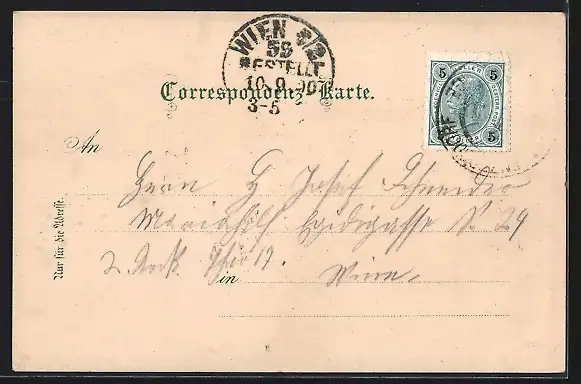 WIEN 6/2
59
BESTELLT
10.9.00
3-5
Correspondenz-Karte.
5 5
5
An
Herrn G Josef Schneider
Mariahilf Egidigasse No 29
2 Stock Thür 17.
in Wien.
Nur für die Adresse.